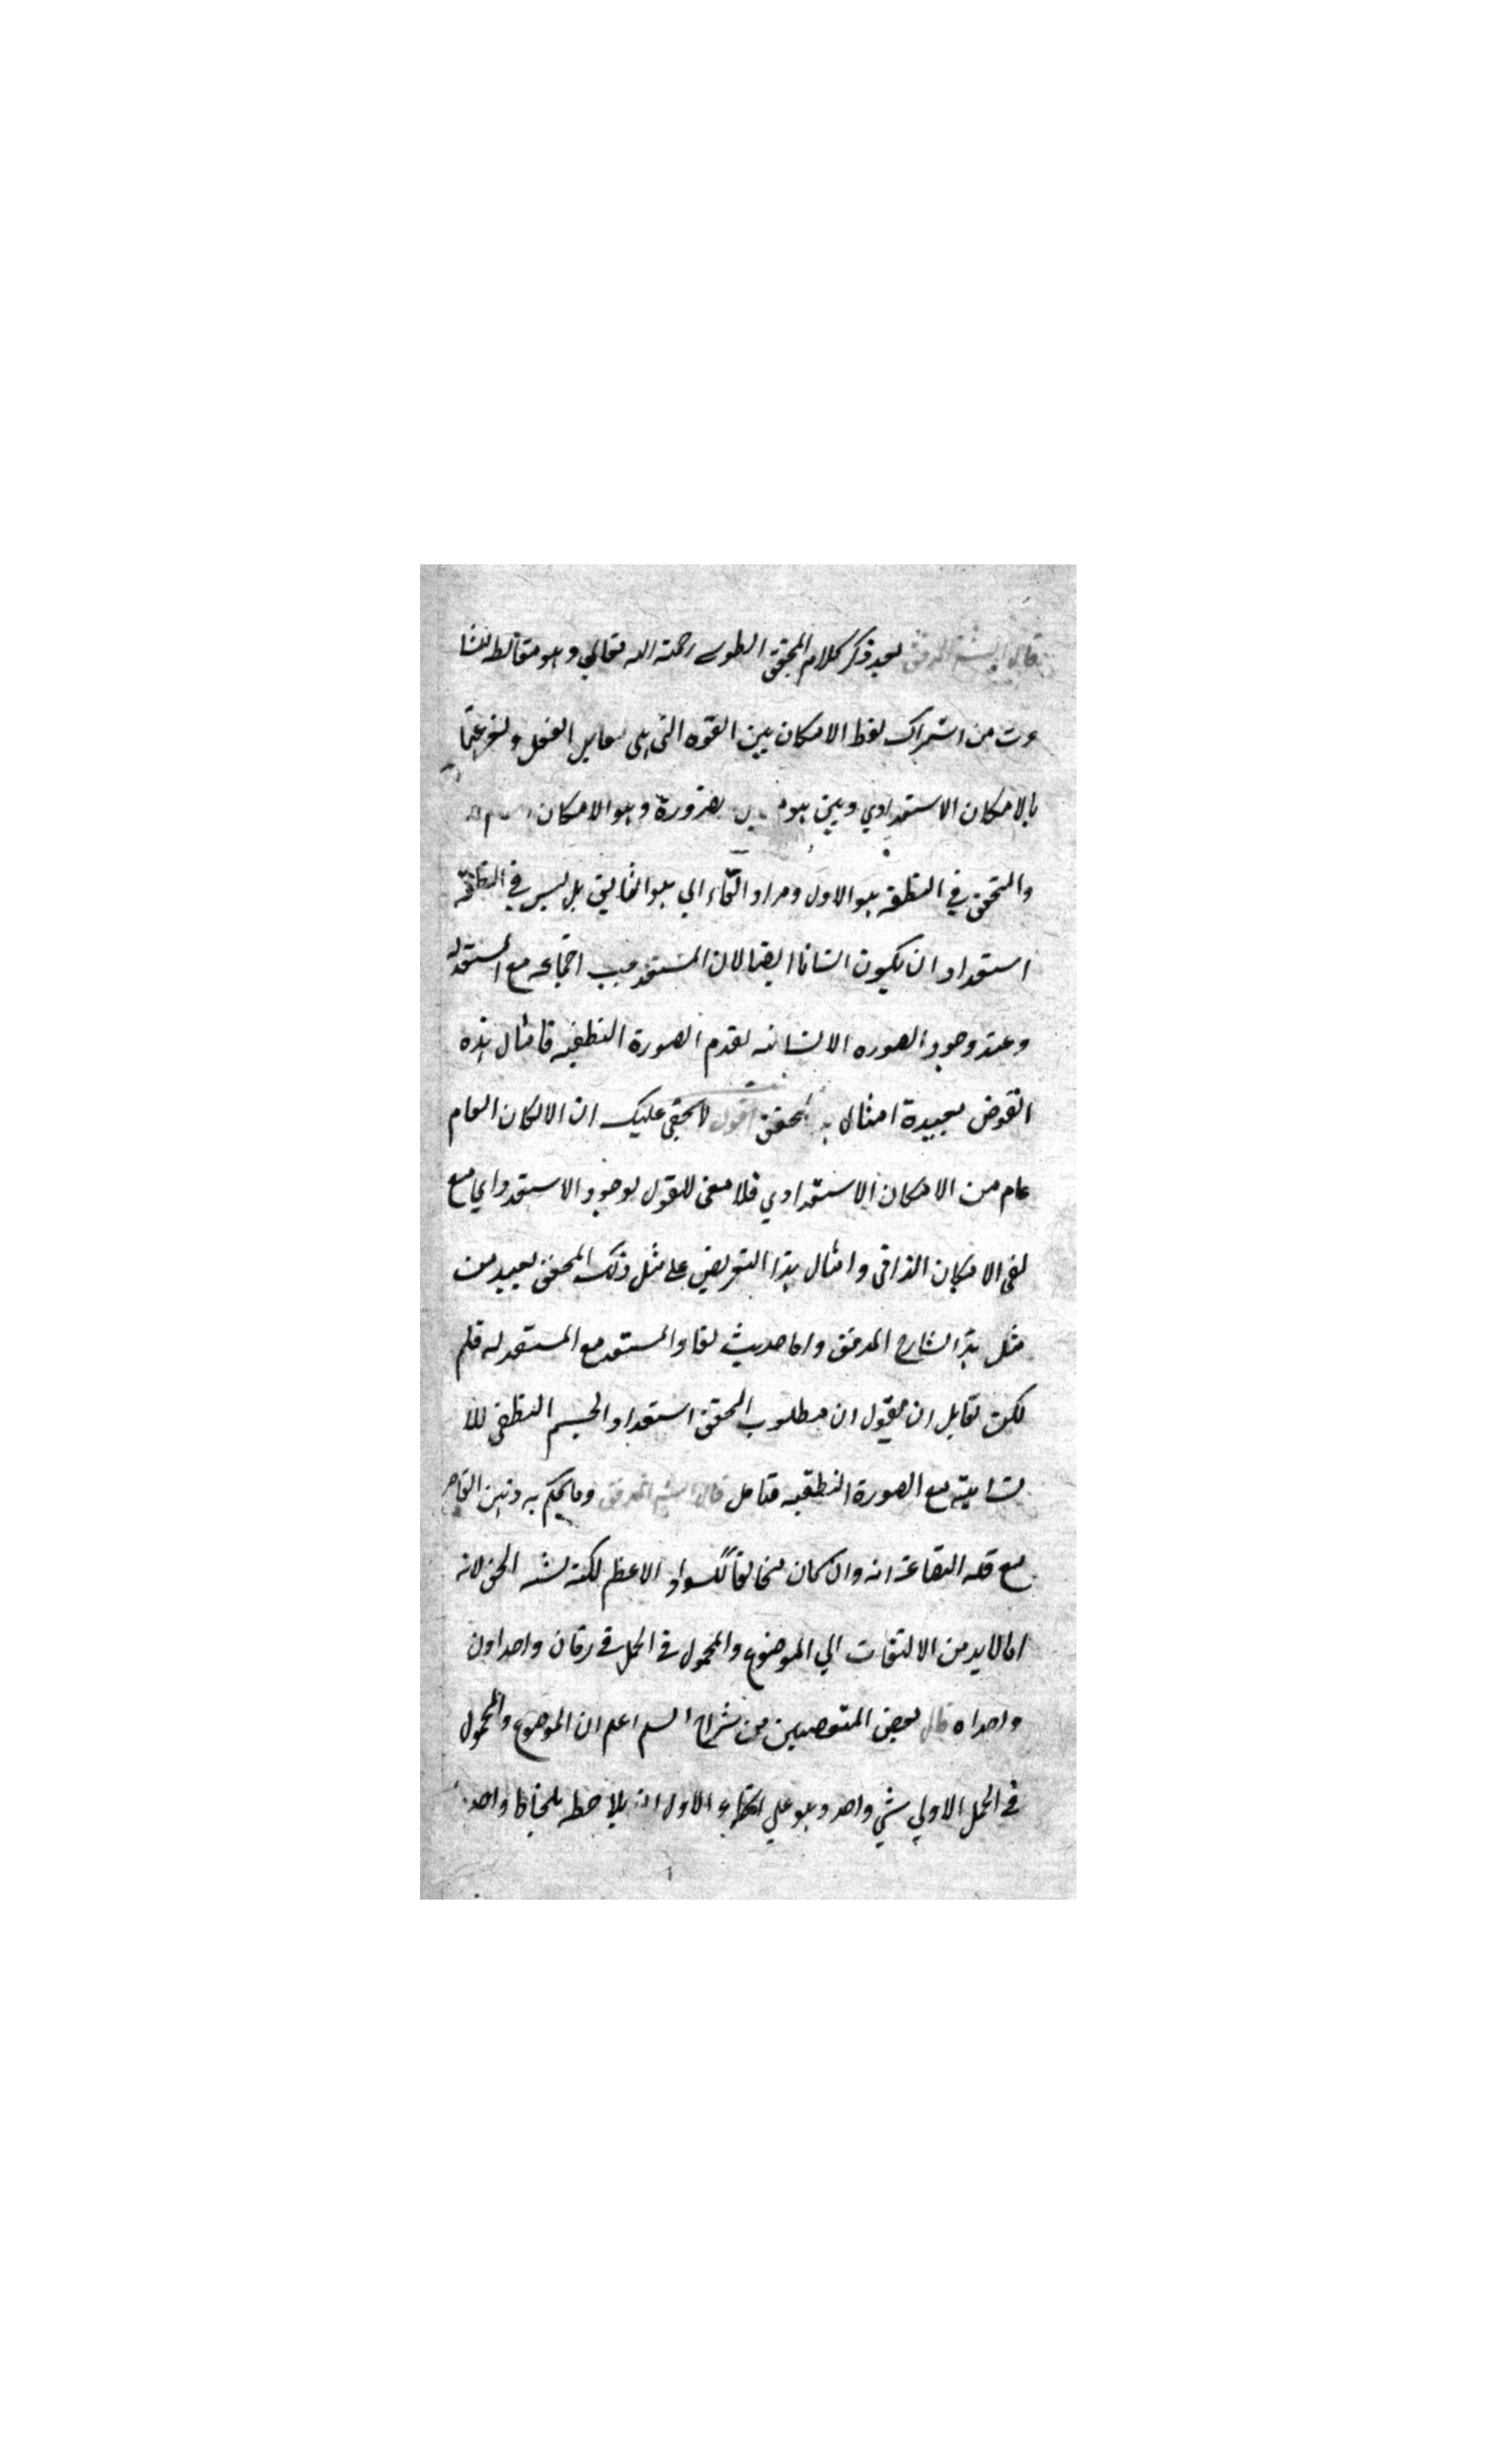 قال الشارح المدقق بعد ذكر كلام المحقق الطوسے رحمته الله تعالي وهو مغالطه نشا
ءت من اشتراك لفظ الامكان بين القوه التي هي تقابل الفعل ولنعرعنها
بالامكان الاستعدادي وبين هو بضرورة وهو الامكان
والمتحقق في النطفه هو الاول ومراد القاء الي هو الثاني بل ليس في النطفه
استعداد ان يكون انسانا ايضا لان المستعد يجب اجتماعه مع المستعد له
وعند وجود الصوره الانسانيه لعدم الصورة النطفيه فامثال هذه
النقوض بعيدة امثال المحقق اقول لا يخفى عليك ان الامكان العام
عام من الامكان الاستعدادي فلا معنى للقول بوجود الاستعدادي مع
نفى الامكان الذاتى وامثال هذا التعريض على مثل ذلك المحقق بعيد من
مثل هذا الشارح المدقق واما حديث لقاء المستعد مع المستعد له فلم
لكن لقايل ان يقول ان مطلوب المحقق استعداد الجسم النطفى للا
نسانية مع الصورة النطفيه فتامل قال الشارح المدقق وما يحكم به ذهني القاصر
مع قله البضاعة انه وان كان مخالفاً لسواد الاعظم لكنه لشه الحق لانه
اما لابد من الالتفات الي الموضوع والمحمول في الحمل في زمان واحد اون
واحد اه قال بعض المتعصبين من شراح السلم اعلم ان الموضوع والمحمول
في الحمل الاولي شي واحد وهو علي انحاء الاول ان يلاحظ بلحاظ واحد